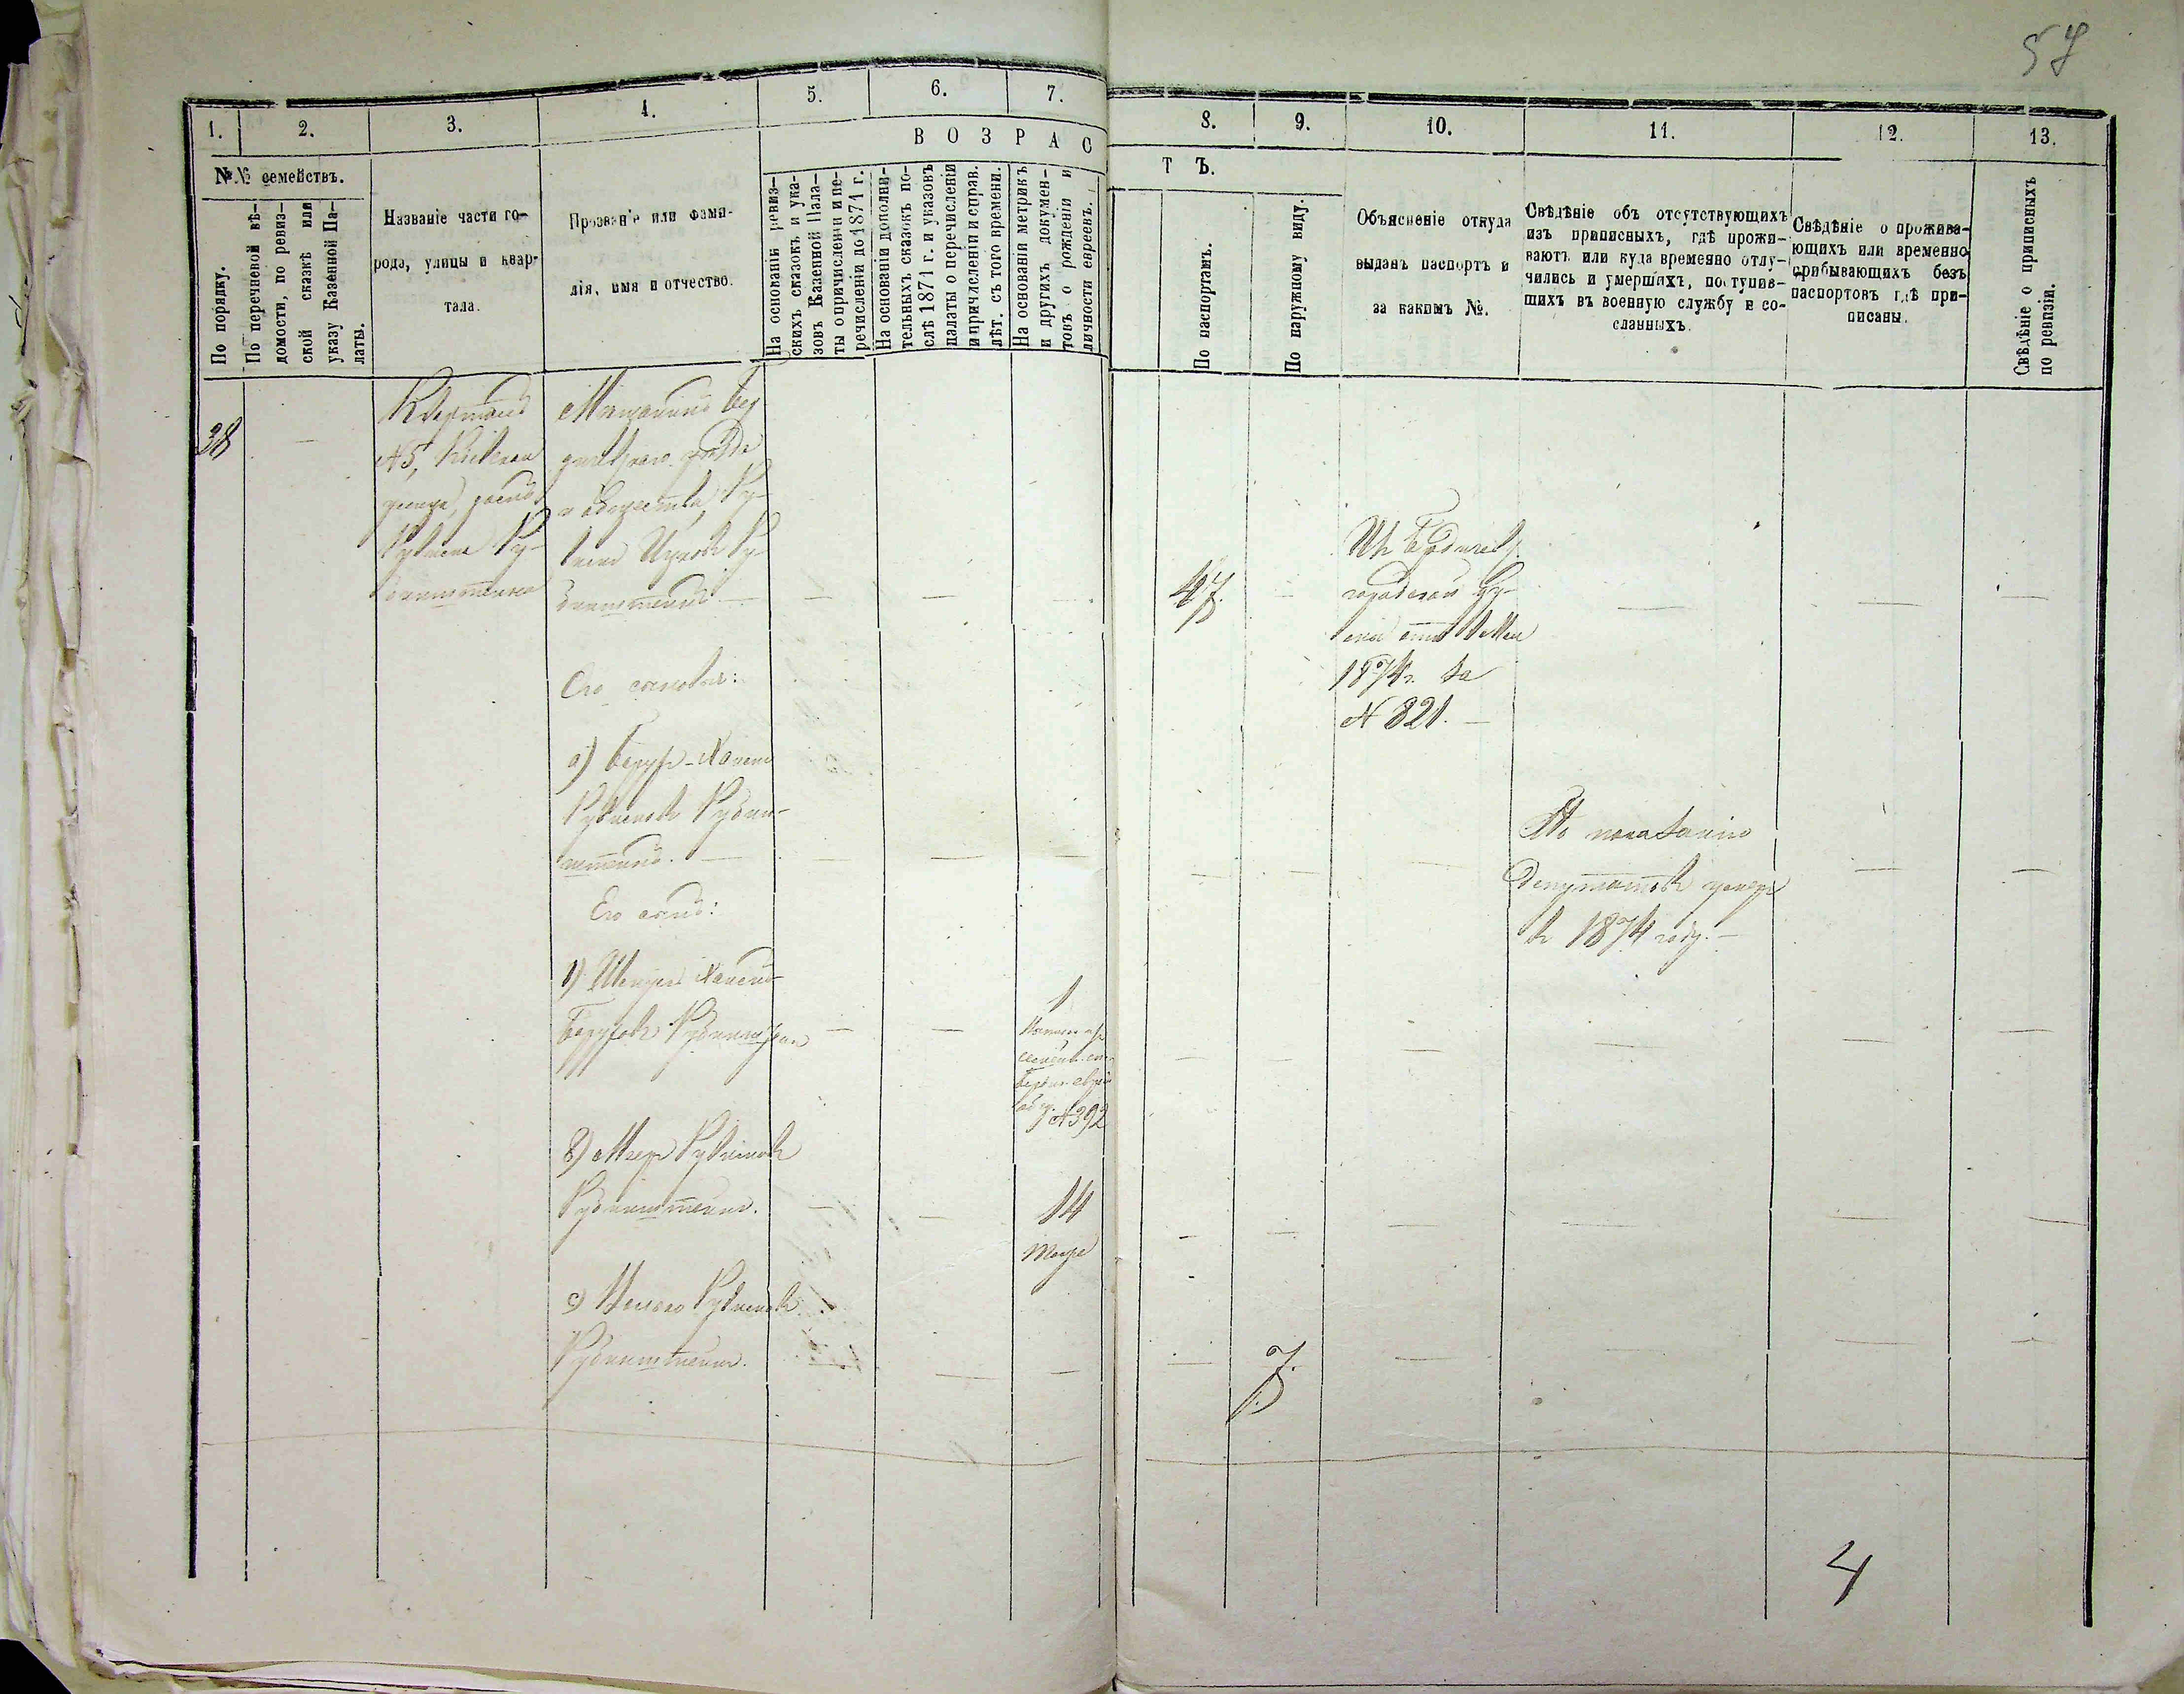 57
1.
2.
3.
4.
5.
6.
7.
8.
9.
10.
11.
12.
13.
№№ семействъ.
По порядку.
По перечневой вѣ-
домости, по ревиз-
ской сказкѣ или
указу Казенной Па-
латы.
Названіе части го-
рода, улицы и квар-
тала.
Прозваніе или фами-
лія, имя и отчество.
ВОЗРАС
ТЪ.
На основаніи ревиз-
скихъ сказокъ и ука-
зовъ Казенной Пала-
ты о причисленіи и пе-
речисленіи до 1871 г.
На основаніи дополни-
тельныхъ сказокъ по-
слѣ 1871 г. и указовъ
палаты о перечисленіи
и причисленіи и справ.
лѣт. съ того времени.
На основаніи метрикъ
и другихъ докумен-
товъ о рожденіи и
личности евреевъ.
По паспортамъ.
По наружному виду.
Объясненіе откуда
выданъ паспортъ и
за какимъ №.
Свѣдѣніе объ отсутствующихъ
изъ приписныхъ, гдѣ прожи-
ваютъ или куда временно отлу-
чились и умершихъ, поступив-
шихъ въ военную службу и со-
сланныхъ.
Свѣдѣніе о прожива-
ющихъ или временно
прибывающихъ безъ
паспортовъ гдѣ при-
писаны.
Свѣдѣніе о приписныхъ
по ревизіи.
38
—
Кварталъ
№5, Кіевская
улица, домъ
Рувина Ру-
бинштейна
Мѣщанинъ Бер-
дичевскаго
общества, Ру-
винъ Ицковъ Ру-
бинштейнъ —
47.
Изъ Бердичев.
городской Ду-
мы отъ Мая
1874 г. за
№ 821. —
Его сыновья:
а) Борухъ-Хаимъ
Рувиновъ Рубин-
штейнъ. —
По показанію
депутатовъ умеръ
въ 1874 году. —
Его сынъ:
1) Хаимъ-
Боруховъ Рубинштейнъ
1
№392
в) Меер Рувиновъ
Рубинштейнъ.
14
тоже
с) Рувиновъ
Рубинштейнъ.
7.
4